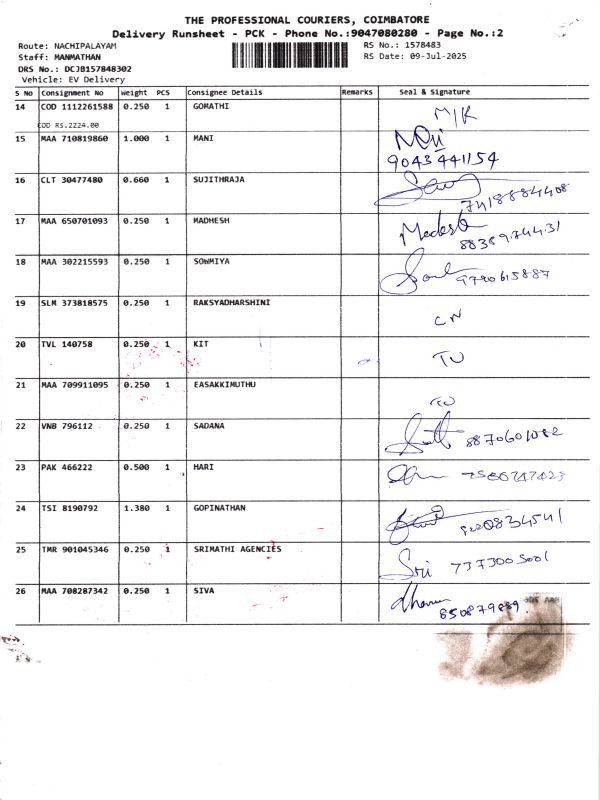 THE PROFESSIONAL COURIERS, COIMBATORE
Delivery Runsheet - PCK - Phone No.:9047080280 - Page No.:2
Route: NACHIPALAYAM RS No.: 1578483
Staff: MANMATHAN RS Date: 09-Jul-2025
DRS No.: DCJB157848302
Vehicle: EV Delivery
S No Consignment No Weight PCS Consignee Details Remarks Seal & Signature
14 COD 1112261588 0.250 1 GOMATHI M/K
COD RS.2224.00
15 MAA 710819860 1.000 1 MANI
9043441154
16 CLT 30477480 0.660 1 SUJITHRAJA
7418884408
17 MAA 650701093 0.250 1 MADHESH
8838974431
18 MAA 302215593 0.250 1 SOWMIYA 9790615887
19 SLM 373818575 0.250 1 RAKSYADHARSHINI CN
20 TVL 140758 0.250 1 KIT TU
21 MAA 709911095 0.250 1 EASAKKIMUTHU TU
22 VNB 796112 0.250 1 SADANA 8870601082
23 PAK 466222 0.500 1 HARI
24 TSI 8190792 1.380 1 GOPINATHAN
25 TMR 901045346 0.250 1 SRIMATHI AGENCIES Sri 737300 5001
26 MAA 708287342 0.250 1 SIVA